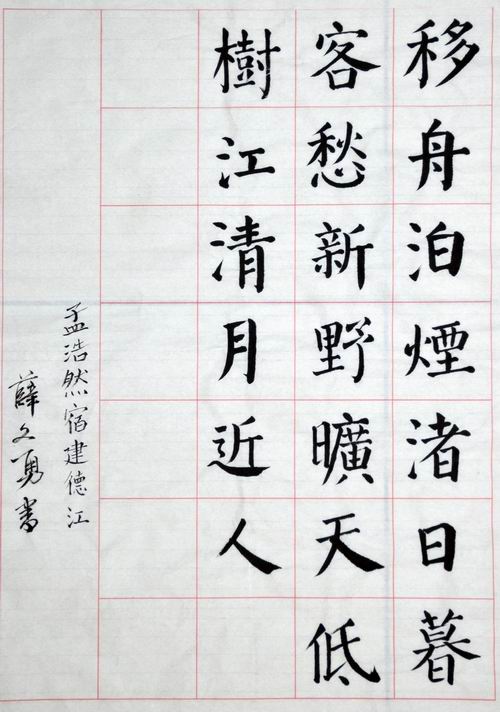 移舟泊煙渚日暮
客愁新野曠天低
樹江清月近人
孟浩然宿建德江
薛文勇書